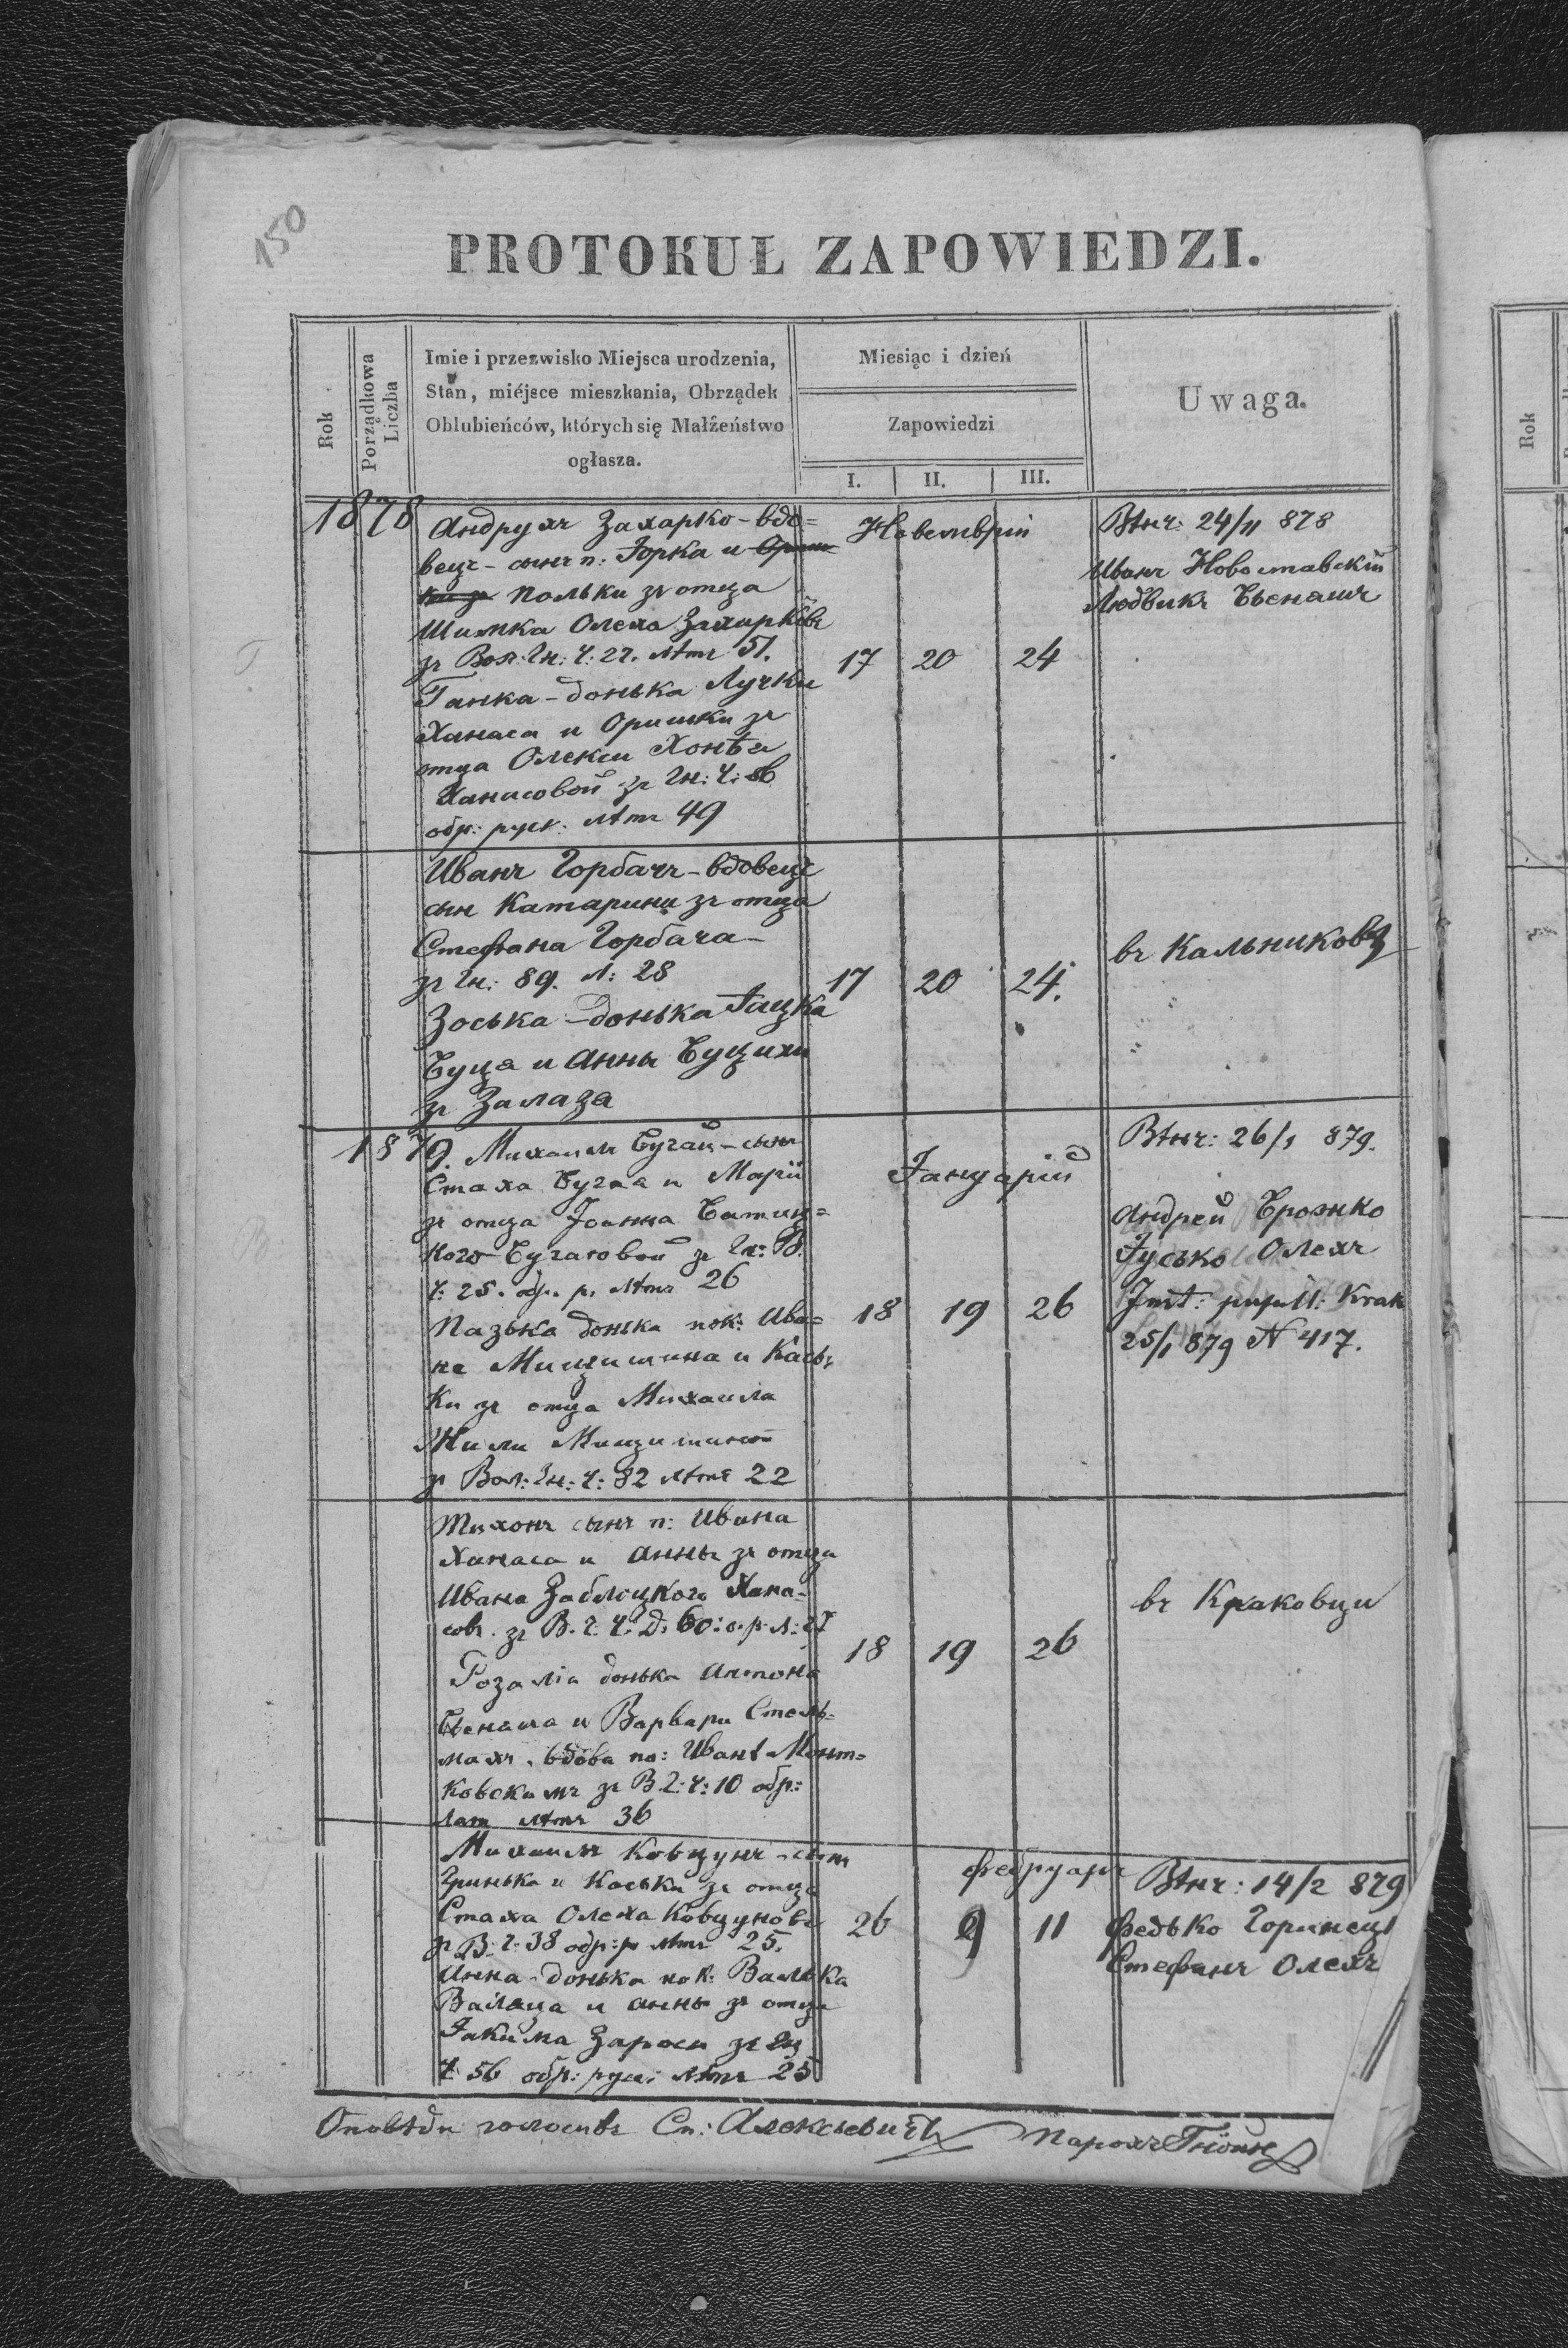 150
PROTOKUŁ ZAPOWIEDZI.
Rok
Porządkowa Liczba
Imie i przezwisko Miejsca urodzenia,
Stan, miéjsce mieszkania, Obrządek
Oblubieńców, których się Małżeństwo
ogłasza.
Miesiąc i dzień
Zapowiedzi
I. II. III.
Uwaga.
1878
Андрухъ Захарко - вдо=
вецъ - сынъ п: Юрка и
Польки зъ отца
Шимка Олеха Захарковъ
зъ Вол: Гн: Ч: 27. лѣтъ 51.
Ганка - донька Лучки
Ханаса и Оришки зъ
отца Олекси Хонѣи
Ханасовой зъ Гн: Ч: 86
обр: руск: лѣтъ 49
Новемврій
17 20 24
Вѣнч: 24/11 878
Иванъ Новоставскій
Людвикъ Бьенашъ
Иванъ Горбачъ - вдовецъ
сын Катарини зъ отца
Стефана Горбача -
зъ Гн: 89. Л: 28
Зоська - донька Яцка
Буца и Анны Буцихи
зъ Залаза
17 20 24.
въ Кальникові
1879.
Михаилъ Бугай - сынъ
Стаха Бугая и Маріи
зъ отца Іоанна Батиц=
кого Бугаговой зъ Гн: В.
Ч: 25. обр. р. лѣтъ 26
Пазька донька пок: Ива=
на Мицишина и Кась=
ки зъ отца Михаила
Жили Мицишиной
зъ Вол: Гн: Ч: 82 лѣтъ 22
Януарій
18 19 26
Вѣнч: 26/1 879.
Андрей Брожко
Гусько Олехъ
Inst: pupill: Krak
25/1 879 N 417.
Тихонъ сынъ п: Ивана
Ханаса и Анны зъ отца
Ивана Заблоцкого Хана=
совъ. зъ В. Г: Ч: Д. 60: о. р. Л: 27
Розалія донька Антона
Бьенаша и Варвари Стель=
махъ, вдова по: Иванѣ Монт=
ковскимъ зъ В. Г: Ч: 10 обр:
лат лѣтъ 36
18 19 26
въ Краковци
Михаилъ Ковцунъ - сынъ
Гринька и Каськи зъ отца
Стаха Олеха Ковцуновъ
зъ В: Ч: 38 обр: р лѣтъ 25.
Анна - донька пок: Валька
Вайлаца и Анны зъ отца
Якима Зароси зъ Гн
Ч 56 обр: руск: лѣтъ 25
фебруаръ
26 9 11
Вѣнч: 14/2 879
Федько Горинецъ
Стефанъ Олехъ
Оповѣди голосивъ Сп: Алексѣевичъ Парохъ Гноинъ
Rok